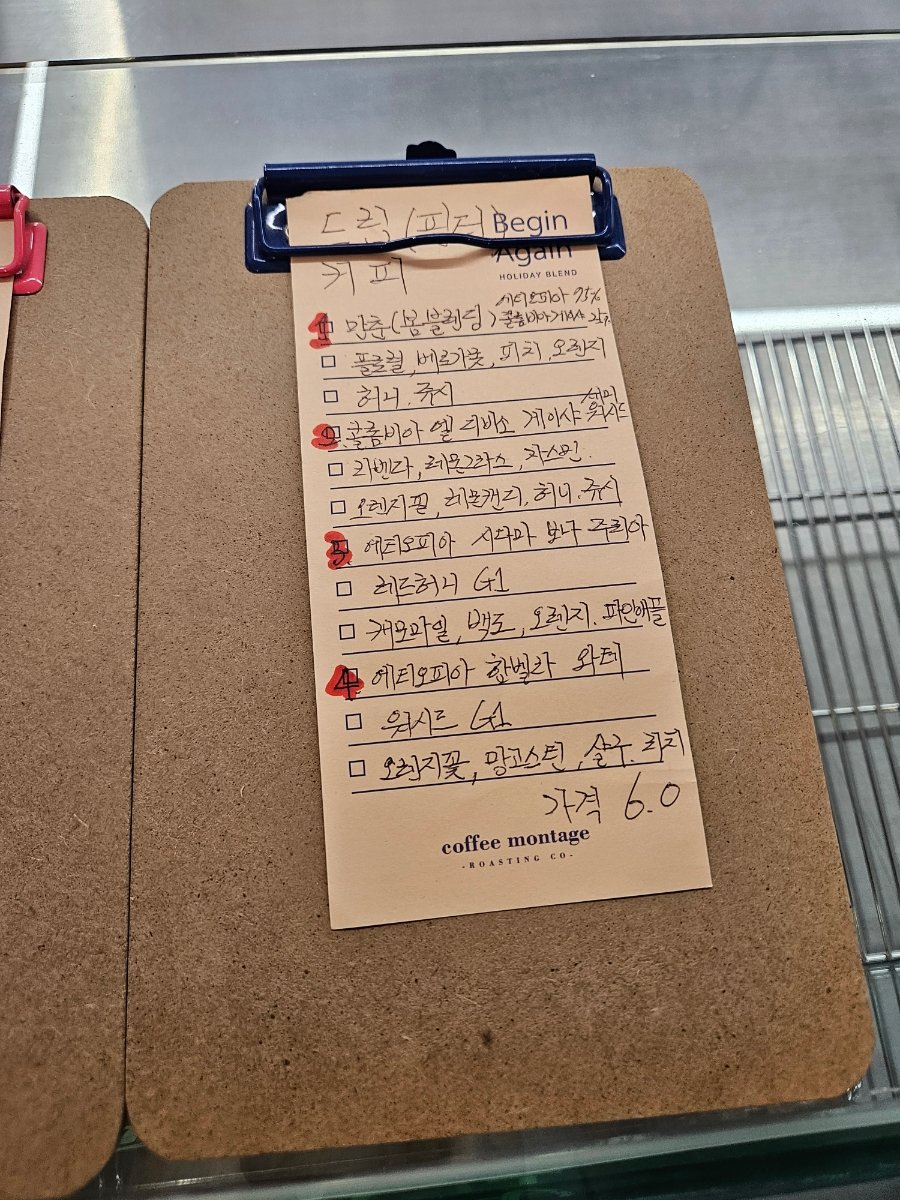 드립(필터)
커피
Begin
Again
HOLIDAY BLEND
1 만춘(봄블렌딩) 에티오피아 75%
콜롬비아게이샤 25%
플로럴, 베르가못, 피치, 오렌지
허니. 쥬시
2 콜롬비아 엘 디비소 게이샤 워시드
라벤다, 레몬그라스, 자스민.
오렌지필, 레몬캔디, 허니. 쥬시
3 에티오피아 시다마 보나 주리아
레드허니 G1
캐모마일, 백도, 오렌지. 파인애플
4 에티오피아 함벨라 와테
워시드 G1
오렌지꽃, 망고스틴, 살구. 리치
가격 6.0
coffee montage
-ROASTING CO-